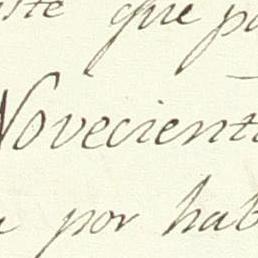 que
Novecient
por hab